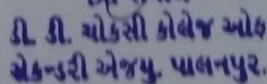 ડી. ડી. ચોકસી કોલેજ ઓફ
સેકન્ડરી એજયુ. પાલનપુર.